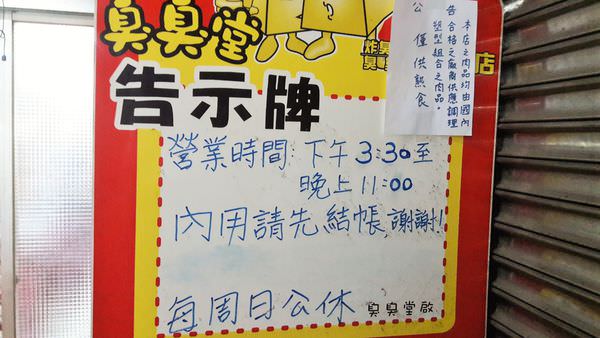 臭臭堂
炸臭
臭鴨
店
告示牌
公告 本店之肉品均由國內
合格之廠商供應調理
塑型組合之肉品。
僅供熟食
營業時間: 下午 3:30至
晚上 11:00
內用請先結帳,謝謝!
每周日公休
臭臭堂啟